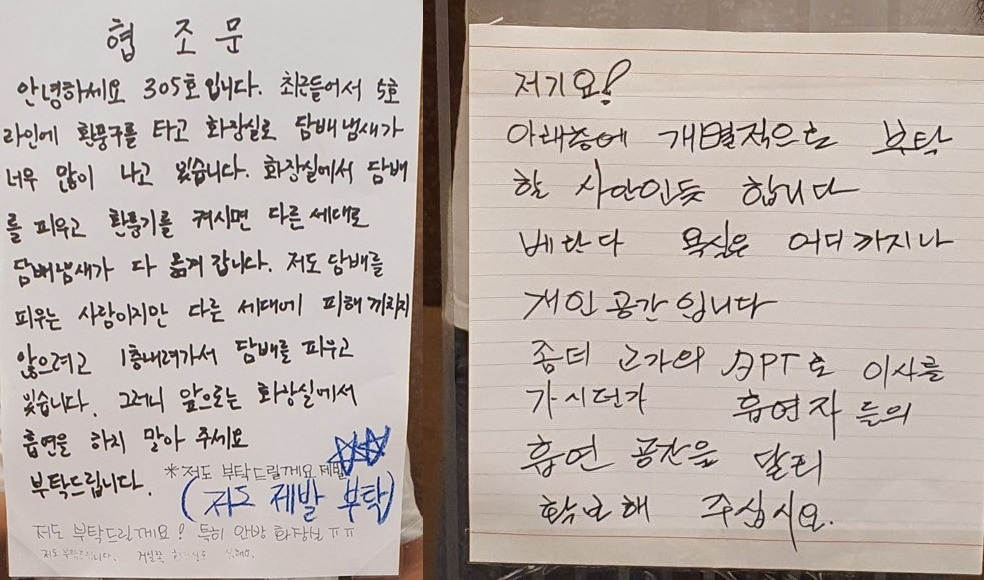 협 조 문
안녕하세요 305호입니다. 최근들어서 5호
라인에 환풍구를 타고 화장실로 담배냄새가
너무 많이 나고 있습니다. 화장실에서 담배
를 피우고 환풍기를 켜시면 다른 세대로
담배냄새가 다 옮겨 갑니다. 저도 담배를
피우는 사람이지만 다른 세대에 피해 끼치지
않으려고 1층내려가서 담배를 피우고
있습니다. 그러니 앞으로는 화장실에서
흡연을 하지 말아 주세요
부탁드립니다.
*저도 부탁드릴게요 제발
(저도 제발 부탁)
저도 부탁드릴게요! 특히 안방 화장실 ㅠㅠ
저도 부탁드립니다. 거실쪽
저기요!
아래층에 개별적으로 부탁
할 사안인듯 합니다
베란다 욕실은 어디까지나
개인공간입니다
좀더 고가의 APT로 이사를
가시던가 흡연자들의
흡연 공간을 달리
확보해 주십시요.